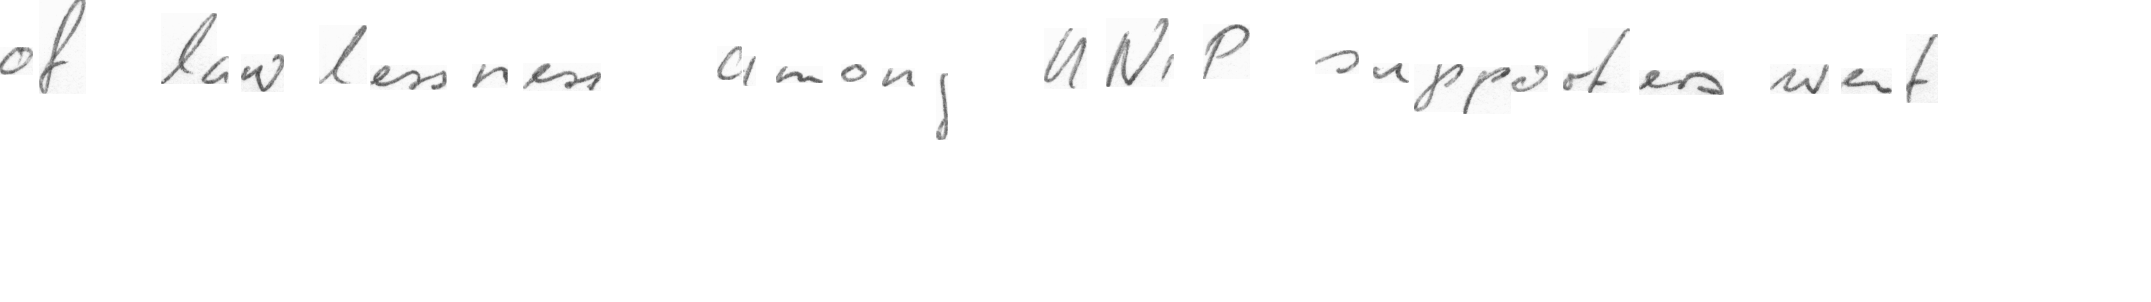 of lawlessness among UNIP supporters went